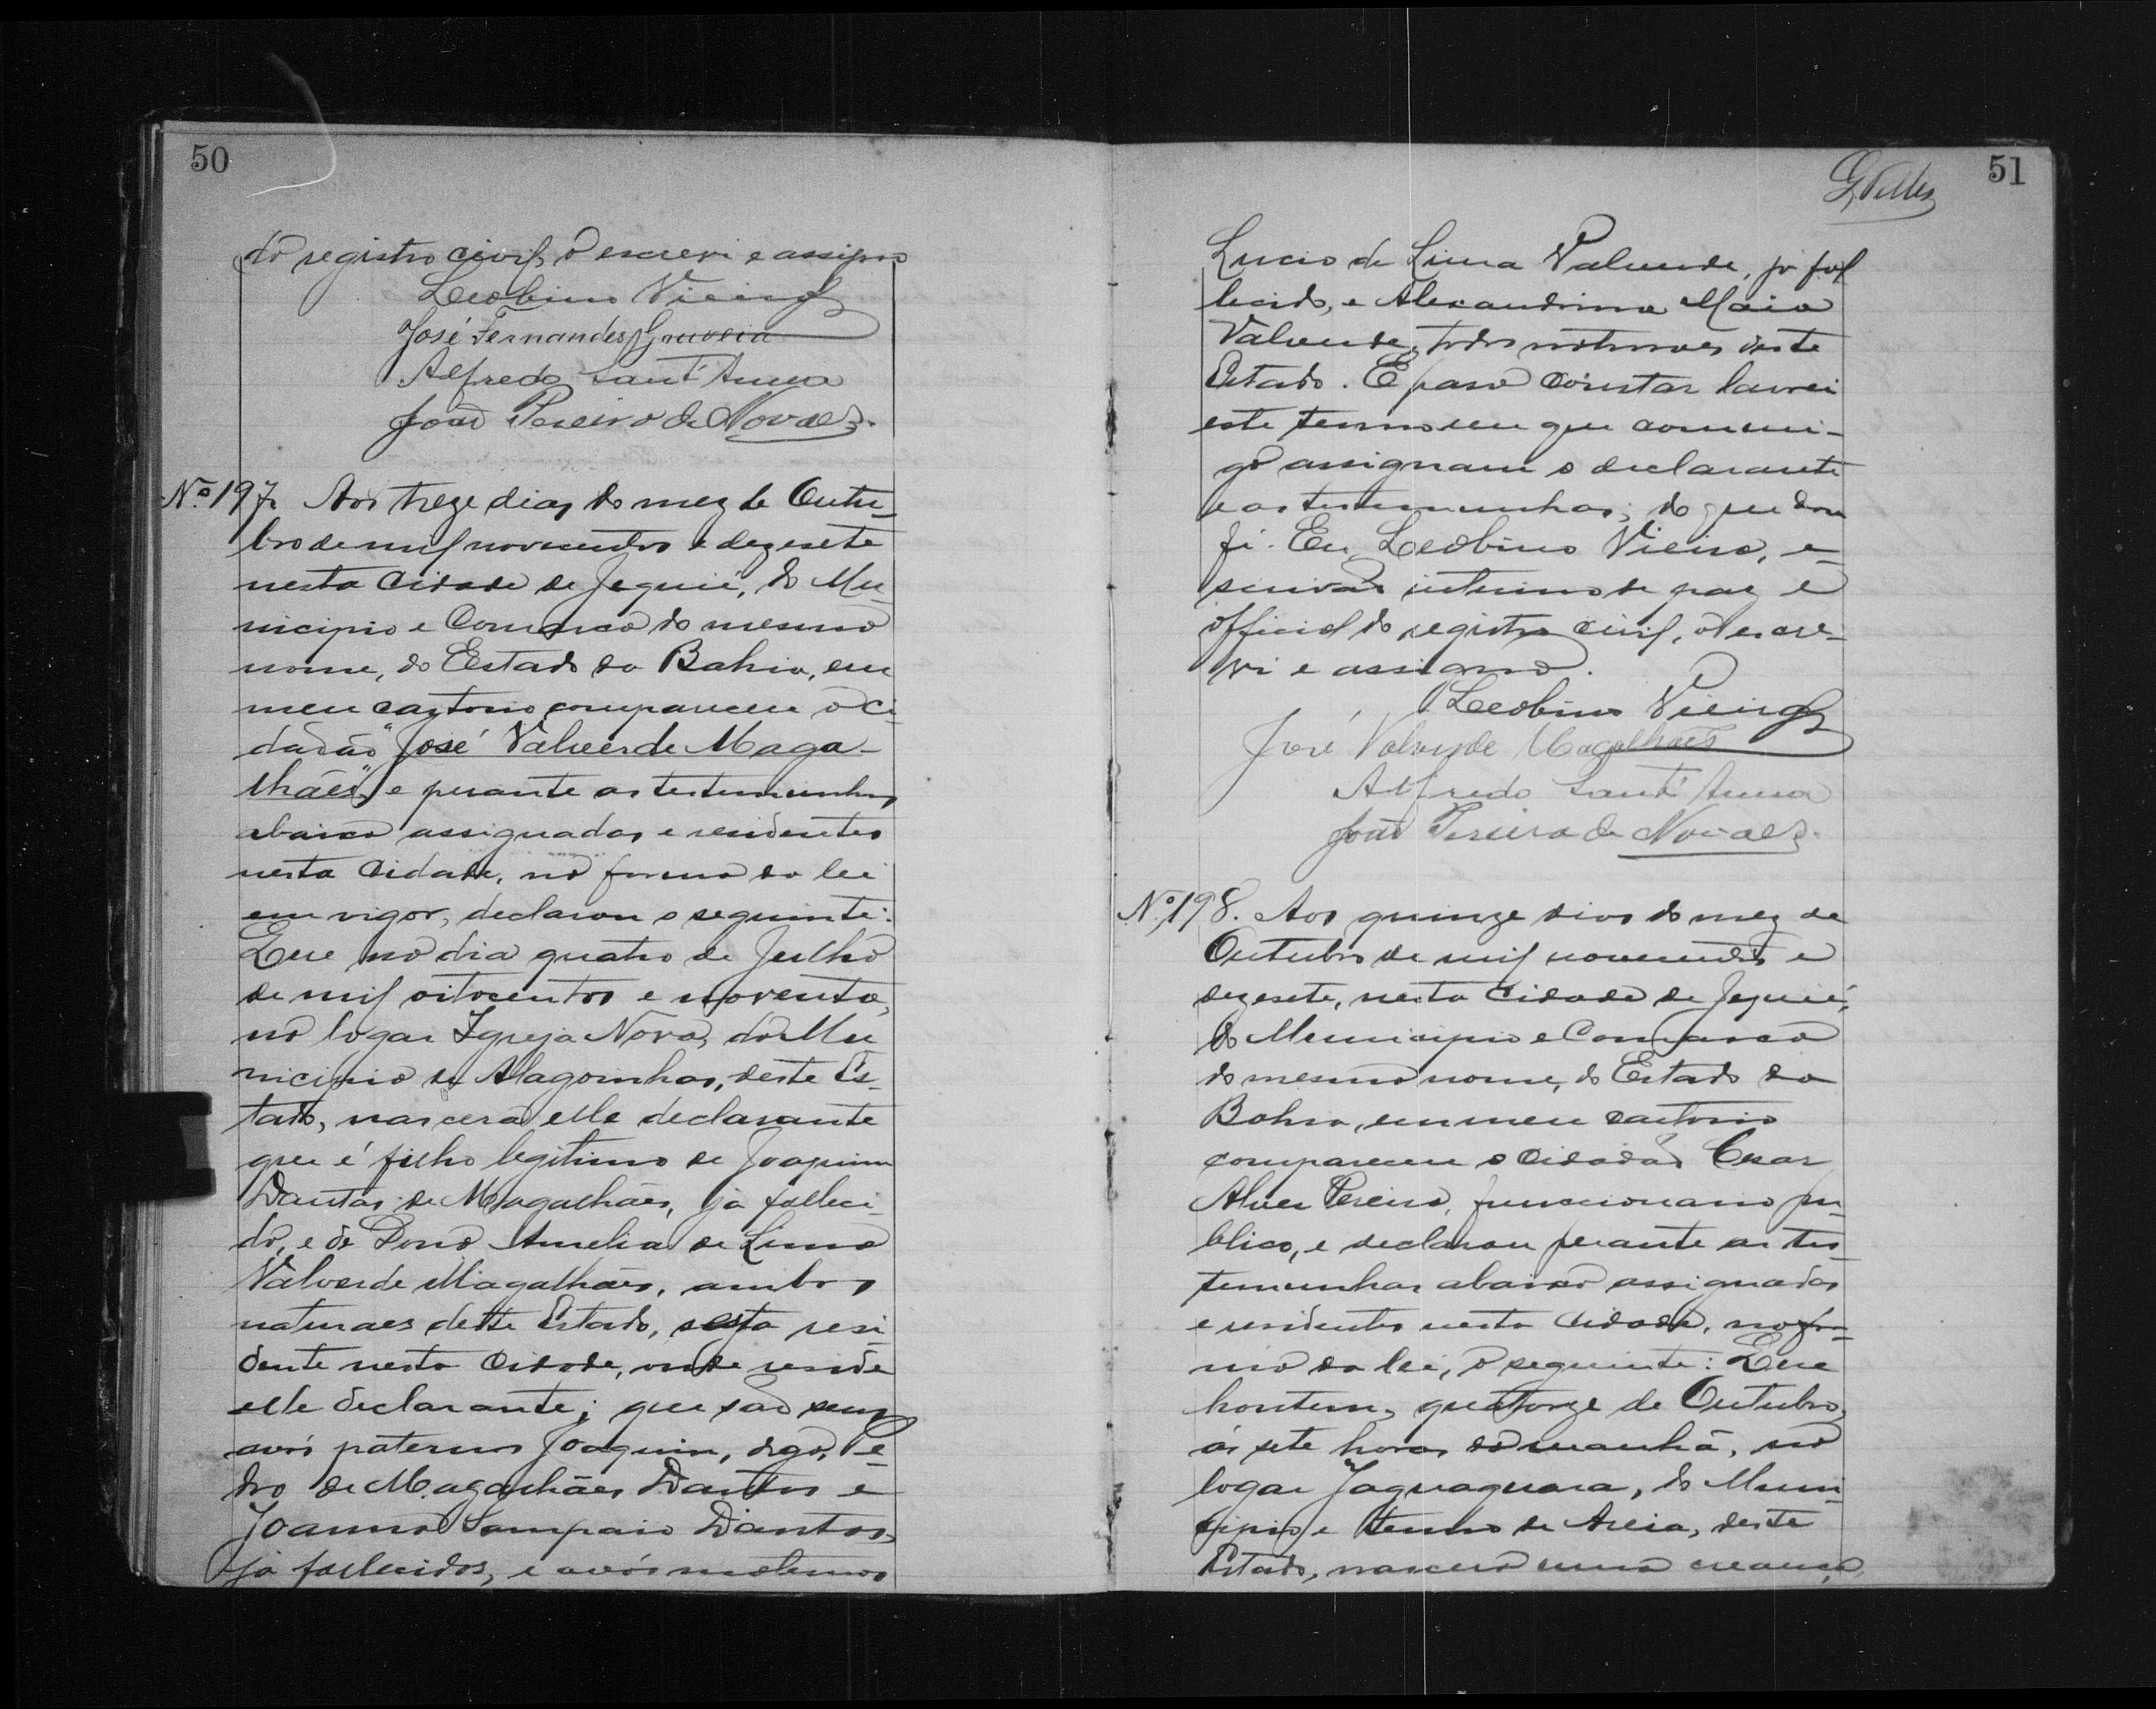 50
do registro civil, o escrevi e assigno
Leobino Vieira
José Fernandes Gouveia
Alfredo Sant'Anna
João Pereira de Novaes.
Nº 197. Aos treze dias do mez de Outu-
bro de mil novecentos e dezesete
nesta Cidade de Jequié, do Mu-
nicipio e Comarca do mesmo
nome, do Estado da Bahia, em
meu cartorio compareceu o Ci-
dadão "José Valverde Maga-
lhães", e perante as testemunhas
abaixo assignadas e residentes
nesta Cidade, na forma da lei
em vigor, declarou o seguinte:
Que no dia quatro de Julho
de mil oitocentos e noventa,
no logar Igreja Nova, do Mu
nicipio de Alagoinhas, deste Es-
tado, nascera elle declarante
que é filho legitimo de Joaquim
Dantas de Magalhães, já falleci-
do, e de Dona Amelia de Lima
Valverde Magalhães, ambos
naturaes deste Estado, esta resi-
dente nesta Cidade, onde reside
elle declarante; que são seus
avós paternos Joaquim, digo, Pe-
dro de Magalhães Dantas e
Joanna Sampaio Dantas,
já fallecidos, e avós maternos
51
Lucio de Lima Valverde, já fal
lecido, e Alexandrina Maia
Valverde, todos naturaes deste
Estado. E para constar lavrei
este termo em que commi-
go assignam o declarante
e as testemunhas; do que dou
fé. Eu, Leobino Vieira, e-
scrivão interino de paz e
official do registro civil, o escre-
vi e assigno.
Leobino Vieira
José Valverde Magalhães
Alfredo Sant'Anna
João Pereira de Novaes.
Nº 198. Aos quinze dias do mez de
Outubro de mil novecentos e
dezesete, nesta Cidade de Jequié,
do Municipio e Comarca
do mesmo nome, do Estado da
Bahia, em meu cartorio
compareceu o Cidadão Cesar
Alves Pereira, funccionario pu-
blico, e declarou perante as tes-
temunhas abaixo assignadas
e residentes nesta Cidade, na for-
ma da lei, o seguinte: Que
hontem, quatorze de Outubro,
ás sete horas da manhã, no
logar Jaguaquara, do Muni-
cipio e termo de Areia, deste
Estado, nascera uma creança